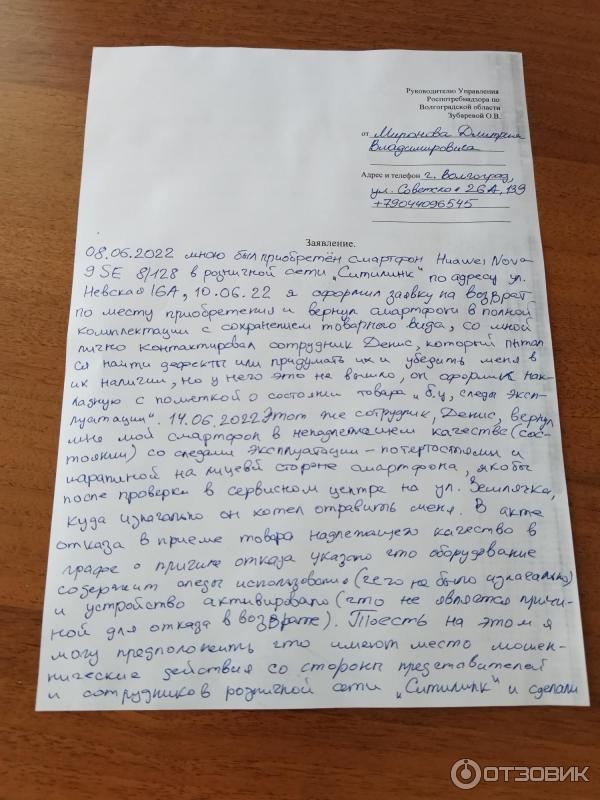 Руководителю Управления
Роспотребнадзора по
Волгоградской области
Зубаревой О.В.
от Миронова Дмитрия
Владимировича
Адрес и телефон г. Волгоград,
ул. Советская 26А, 139
+79044096545
Заявление.
08.06.2022 мною был приобретён смартфон Huawei Nova
9 SE 8/128 в розничной сети „Ситилинк" по адресу ул.
Невская 16А, 10.06.22 я оформил заявку на возврат
по месту приобретения и вернул смартфон в полной
комплектации с сохранением товарного вида, со мной
лично контактировал сотрудник Денис, который пытал
ся найти дефекты или придумать их и убедить меня в
их наличии, но у него это не вышло, он оформил нак-
ладную с пометкой о состоянии товара „б.у, следы эксп-
луатации". 14.06.2022 Этот же сотрудник, Денис, вернул
мне мой смартфон в ненадлежащем качестве (сос-
тоянии) со следами эксплуатации - потертостями и
царапиной на лицевой стороне смартфона, якобы
после проверки в сервисном центре на ул. Землячка,
куда изначально он хотел отправить меня. В акте
отказа в приеме товара надлежащего качество в
графе о причине отказа указано что оборудование
содержит следы использования (чего не было изначально)
и устройство активировано (что не является причи-
ной для отказа в возврате). Тоесть на этом я
могу предположить что имеют место мошен-
нические действия со стороны представителей
и сотрудников розничной сети „Ситилинк" и сделали
ОТЗОВИК